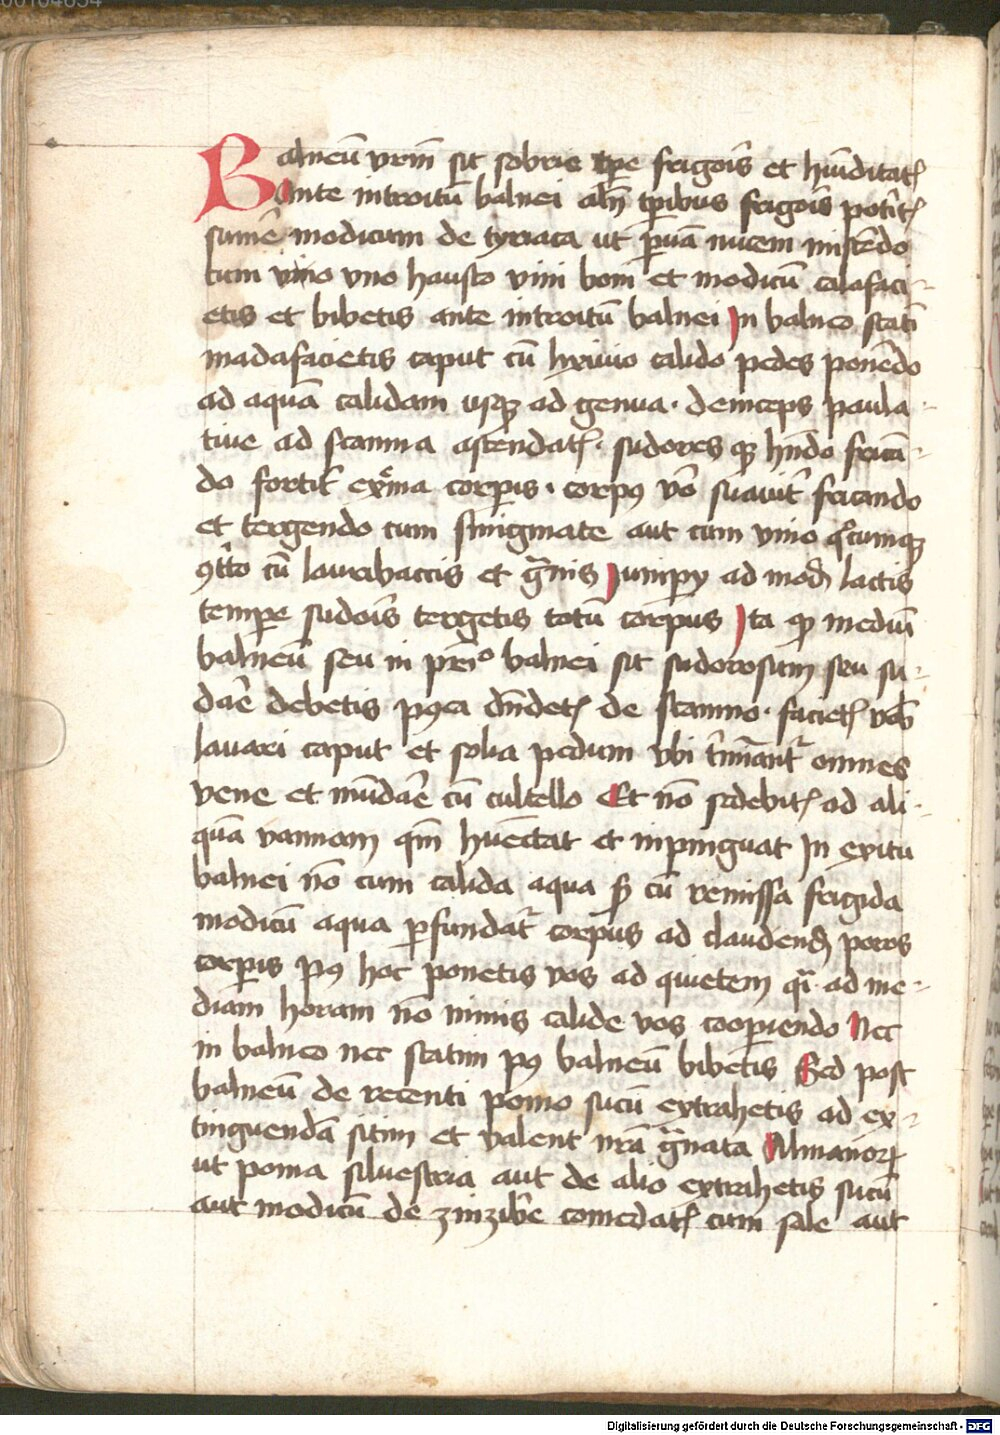 Balneū vrm̄ sit sobrie tpe frigor̄ et hūiditatꝫ
Ante introitū balnei aln̄ tp̄ibus frigor̄ potitꝫ
sumē modicum de tyriaca ut p̄uā nucem miscēdo
cum vino vno hausto vini boni et modicū calafaci-
etis et bibetis ante introitū balnei In balneo statī
madafacietis caput cū lixiuio calido pedes ponēdo
ad aquā calidam usqꝫ ad genua · deinceps paula-
tiue ad scamna ascendatꝫ · sudores qꝫ hn̄do fricā-
do fortit̄ exͣma corꝑis · corpꝰ vō suauit̄ fricando
et tergendo cum smigmate aut cum vino qͦcumqꝫ
ꝯtͦto cū lauribaccis et gͣnis Juniꝑy ad mod̄ lactis
tempe sudoīs tergetis totū corpus Ita qꝫ mediū
balneū seu in prīͦ balnei sit sudorosum seu su-
daē debetis pꝰea dn̄detꝫ de scamno · facietꝫ vob̄
lauari caput et solia pedum vbi t̄mīant̄ omnes
vene et mūdaē cū cultello Et nō sedebitꝫ ad ali-
quā vannam qm̄ hūectat et inpinguat In exitu
balnei nō cum calida aqua sꝫ cū remissa frigida
modicū aqua ꝑfundat̄ corpus ad claudend̄ poros
corꝑis pꝰ hoc ponetis vos ad quietem qͣi ad me-
diam horam nō nimis calide vos cooꝑiendo Nec
in balneo nec statim pꝰ balneū bibetis Sed post
balneū de recenti pomo sucū extrahetis ad ex-
tinguendā sitim et valent mͣa gͣnata Almanioꝝ
ut poma siluestria aut de alio extrahetis sucū
aut modicū de zinzibe comedatꝫ cum sale aut
Digitalisierung gefördert durch die Deutsche Forschungsgemeinschaft - DFG